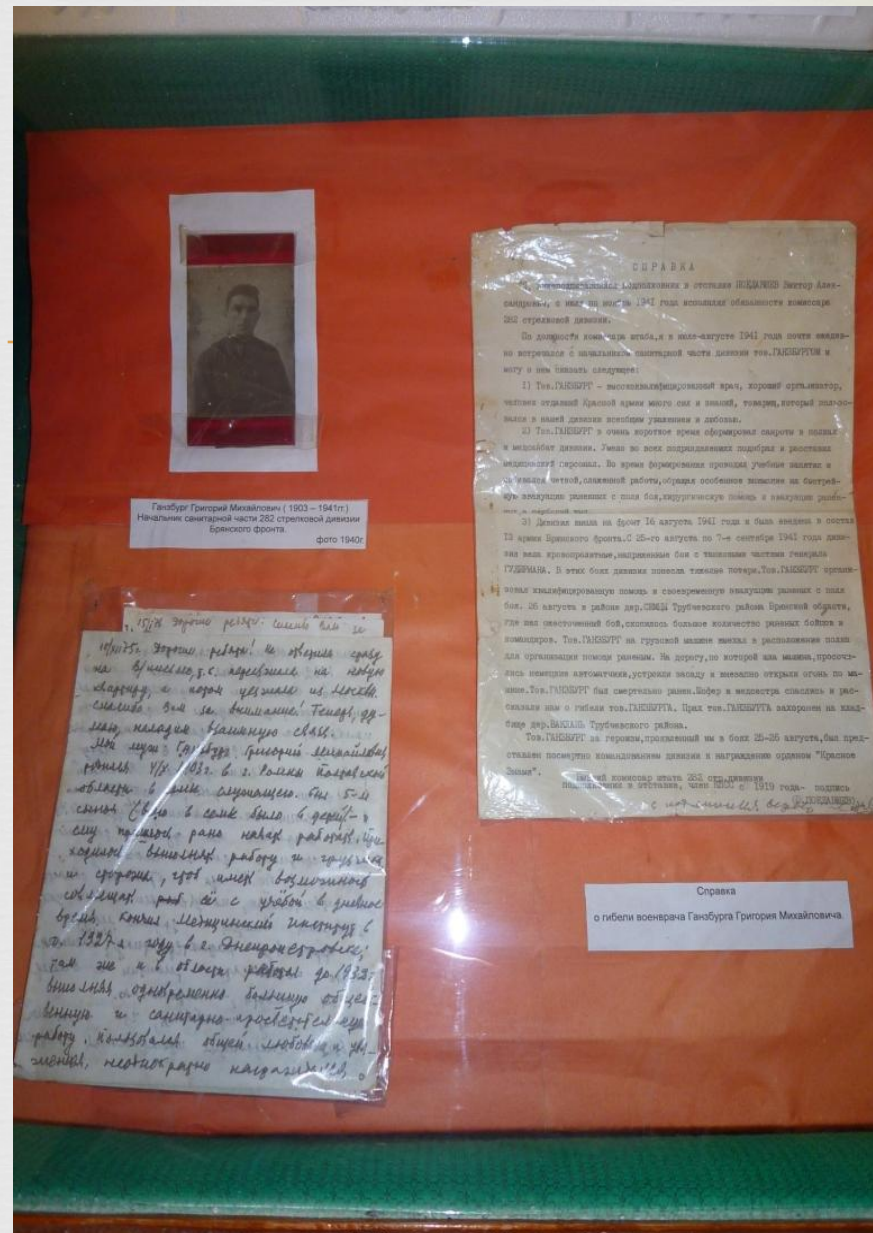 Ганзбург Григорий Михайлович ( 1903 – 1941гг)
Начальник санитарной части 282 стрелковой дивизии
Брянского фронта.
фото 1940г.
15/ Дорогие ребята! Не ответила сразу
на В/письмо, т.к. переезжала на новую
квартиру, а потом уезжала из Москвы.
Спасибо Вам за внимание! Теперь, ду-
маю, наладим взаимную связь.
Мой муж Ганзбург Григорий Михайлович
родился 1903г. в г. Ромны Полтавской
области в семье служащего. Был 5-м
сыном (всего в семье было 6 детей) -
ему пришлось рано начать работать. При-
ходилось выполнять работу и грузчика
и сторожа, чтоб иметь возможность
совмещать с учёбой в дневное
время. Кончил медицинский институт в
1927 году в г. Днепропетровске;
там же и в области работал до 1932
выполняя одновременно большую общест-
венную и санитарно-просветительную
работу. Пользовался общей любовью и ува-
жением, неоднократно награждался.
СПРАВКА
подполковник в отставке Виктор Алек-
сандрович, с июля по ноябрь 1941 года исполнял обязанности комиссара
282 стрелковой дивизии.
По должности комиссара штаба,я в июле-августе 1941 года почти ежедне-
но встречался с начальником санитарной части дивизии тов.ГАНЗБУРГОМ и
могу о нем сказать следующее:
1) Тов.ГАНЗБУРГ - высококвалифицированный врач, хороший организатор,
человек отдавший Красной армии много сил и знаний, товарищ,который пользо-
вался в нашей дивизии всеобщим уважением и любовью.
2) Тов.ГАНЗБУРГ в очень короткое время сформировал санроты в полках
и медсанбат дивизии. Умело во всех подразделениях подобрал и расставил
медицинский персонал. Во время формирования проводил учебные занятия и
добивался четкой,слаженной работы,обращая особенное внимание на быстрей-
шую эвакуацию раненных с поля боя,хирургическую помощь и эвакуацию ране-
3) Дивизия вышла на фронт 16 августа 1941 года и была введена в состав
13 армии Брянского фронта.С 25-го августа по 7-е сентября 1941 года диви-
зия вела кровопролитные,напряженные бои с танковыми частями генерала
ГУДЕРИАНА. В этих боях дивизия понесла тяжелые потери.Тов.ГАНЗБУРГ органи-
зовал квалифицированную помощь и своевременную эвакуацию раненых с поля
боя. 26 августа в районе дер.СЕМЦЫ Трубчевского района Брянской области,
где шел ожесточенный бой,скопилось большое количество раненых бойцов и
командиров. Тов.ГАНЗБУРГ на грузовой машине выехал в расположение полка
для организации помощи раненым. На дорогу,по которой шла машина,просочи-
лись немецкие автоматчики,устроили засаду и внезапно открыли огонь по ма-
шине.Тов.ГАНЗБУРГ был смертельно ранен.Шофер и медсестра спаслись и рас-
сказали нам о гибели тов.ГАНЗБУРГА. Прах тов.ГАНЗБУРГА захоронен на клад-
бище дер. Трубчевского района.
Тов.ГАНЗБУРГ за героизм,проявленный им в боях 25-26 августа,был пред-
ставлен посмертно командованием дивизии к награждению орденом "Красное
Знамя".
комиссар штаба 282 стр.дивизии
подполковник в отставке, член КПСС с 1919 года- подпись
Справка
о гибели военврача Ганзбурга Григория Михайловича.